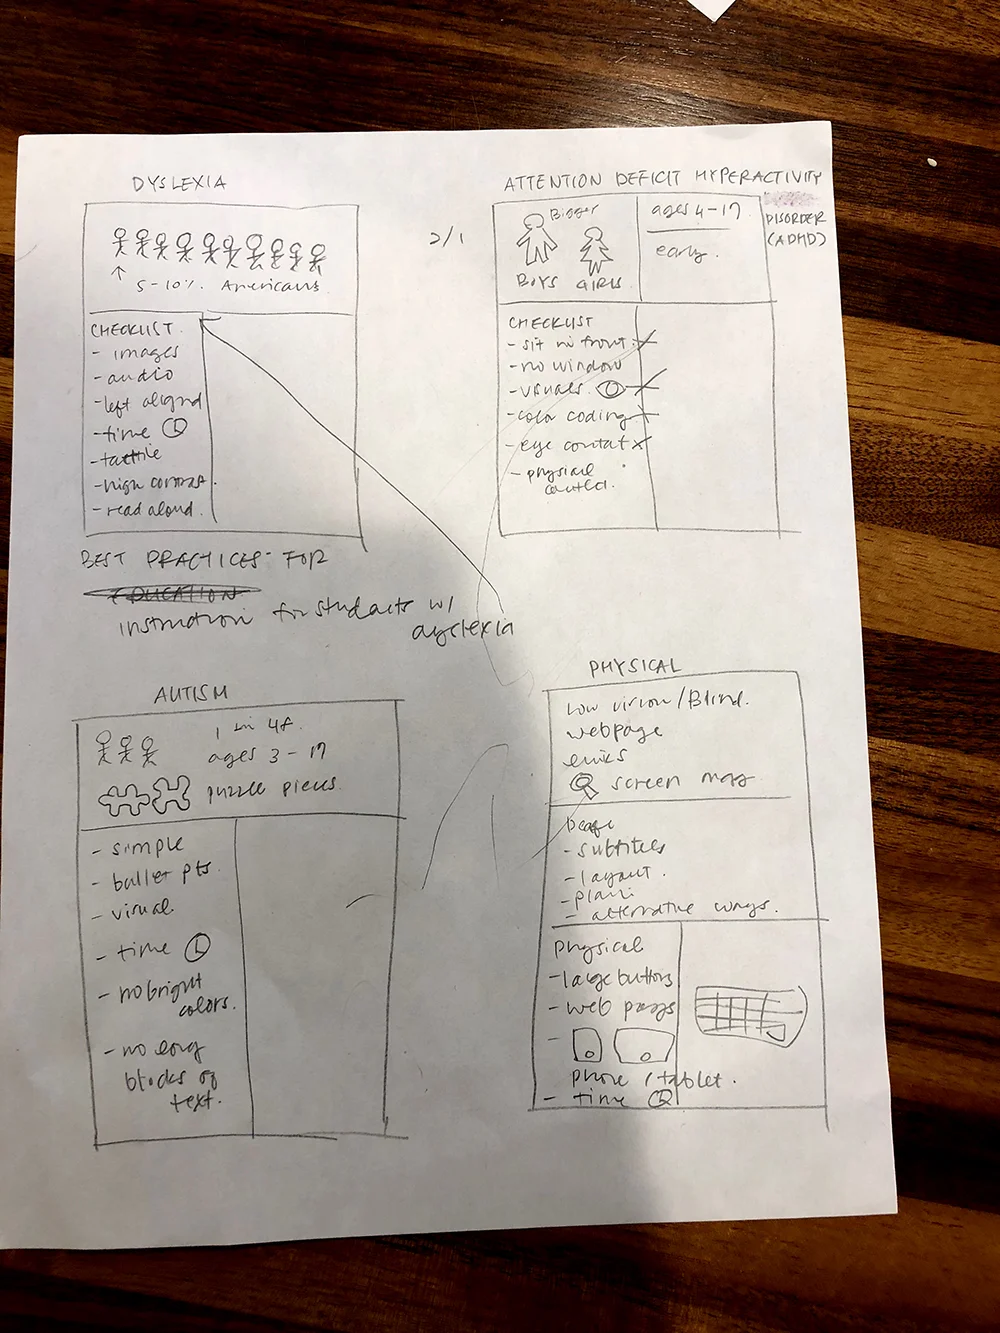 DYSLEXIA
5-10% Americans
CHECKLIST
- images
- audio
- left aligned
- time
- tactile
- high contrast
- read aloud
BEST PRACTICES FOR
EDUCATION
instruction for students w/
dyslexia
2/1
ATTENTION DEFICIT HYPERACTIVITY
DISORDER
(ADHD)
Bigger
BOYS GIRLS
ages 4-17
early
CHECKLIST
- sit in front
- no window
- visuals
- color coding
- eye contact
- physical
AUTISM
1 in 48
ages 3-17
puzzle pieces
- simple
- bullet pts
- visual
- time
- no bright
colors.
- no long
blocks of
text.
PHYSICAL
Low vision/Blind.
webpage
screen mag
Deaf
- subtitles
- layout.
- plain
- alternative ways.
physical
- large buttons
- web pages
-
phone / tablet.
- time